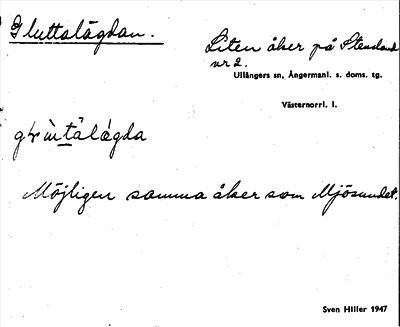 Gluttalägdan.
Liten åker på Stensland
nr 2.
Ullångers sn, Ångermanl. s. doms. tg.
Västernorrl. l.
Möjligen samma åker som Mjösundet.
Sven Hiller 1947